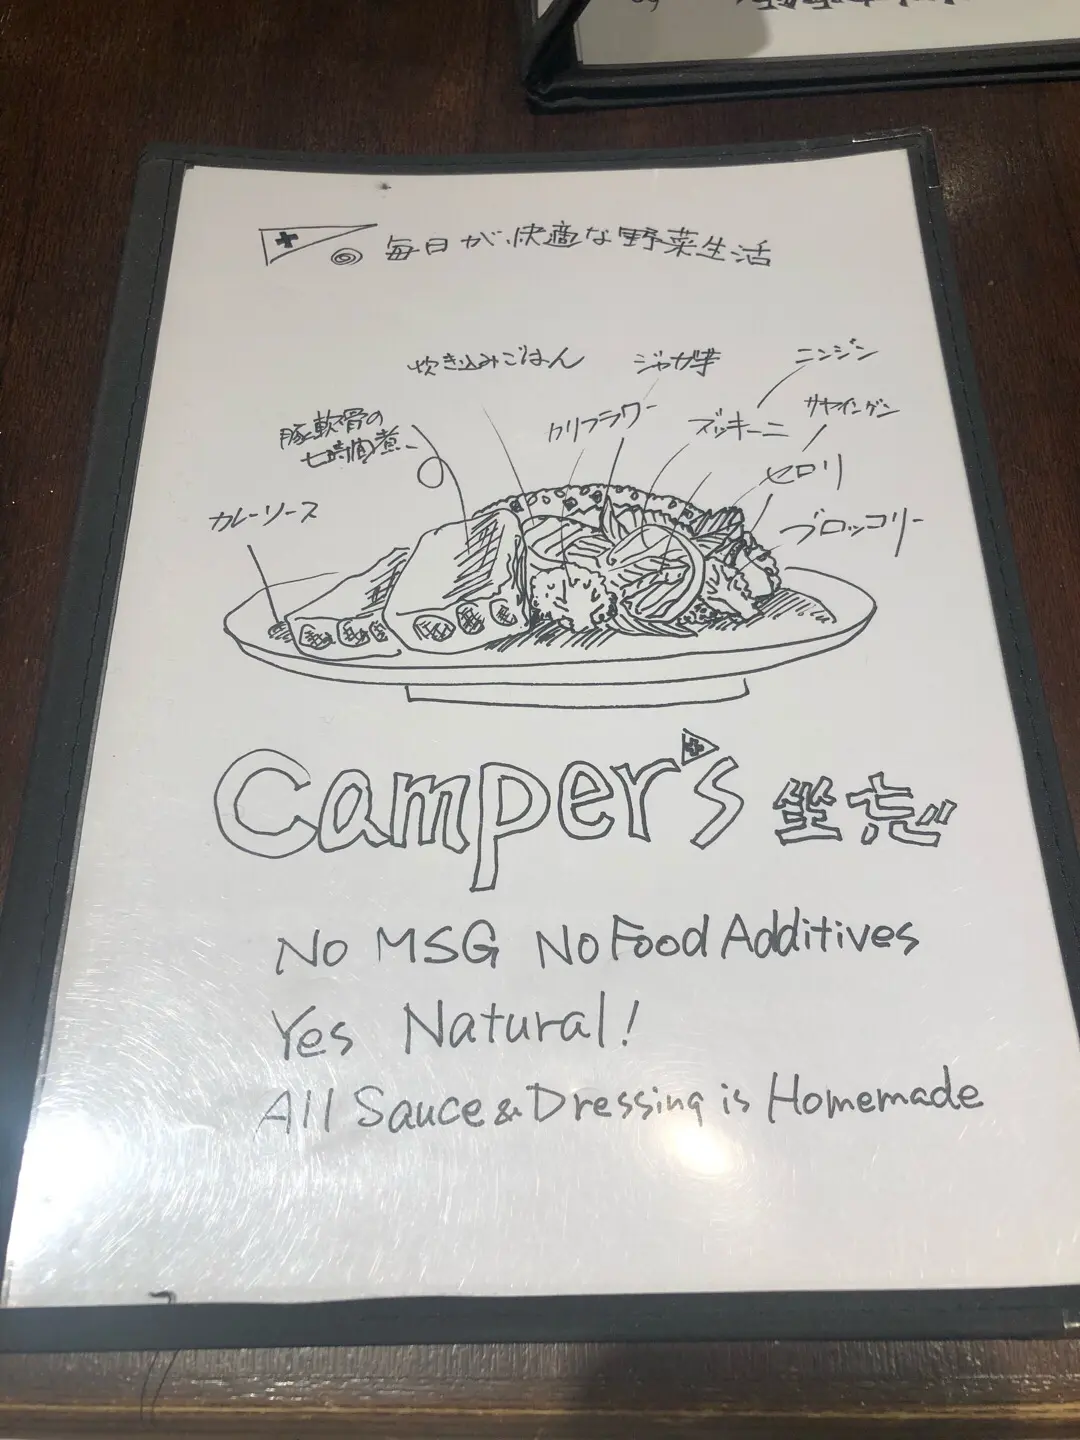 毎日が快適な野菜生活
炊き込みごはん
ジャガ芋
ニンジン
豚軟骨の
七時間煮
カリフラワー
ズッキーニ
サヤインゲン
セロリ
カレーソース
ブロッコリー
Camper's
No MSG No Food Additives
Yes Natural!
All Sauce & Dressing is Homemade